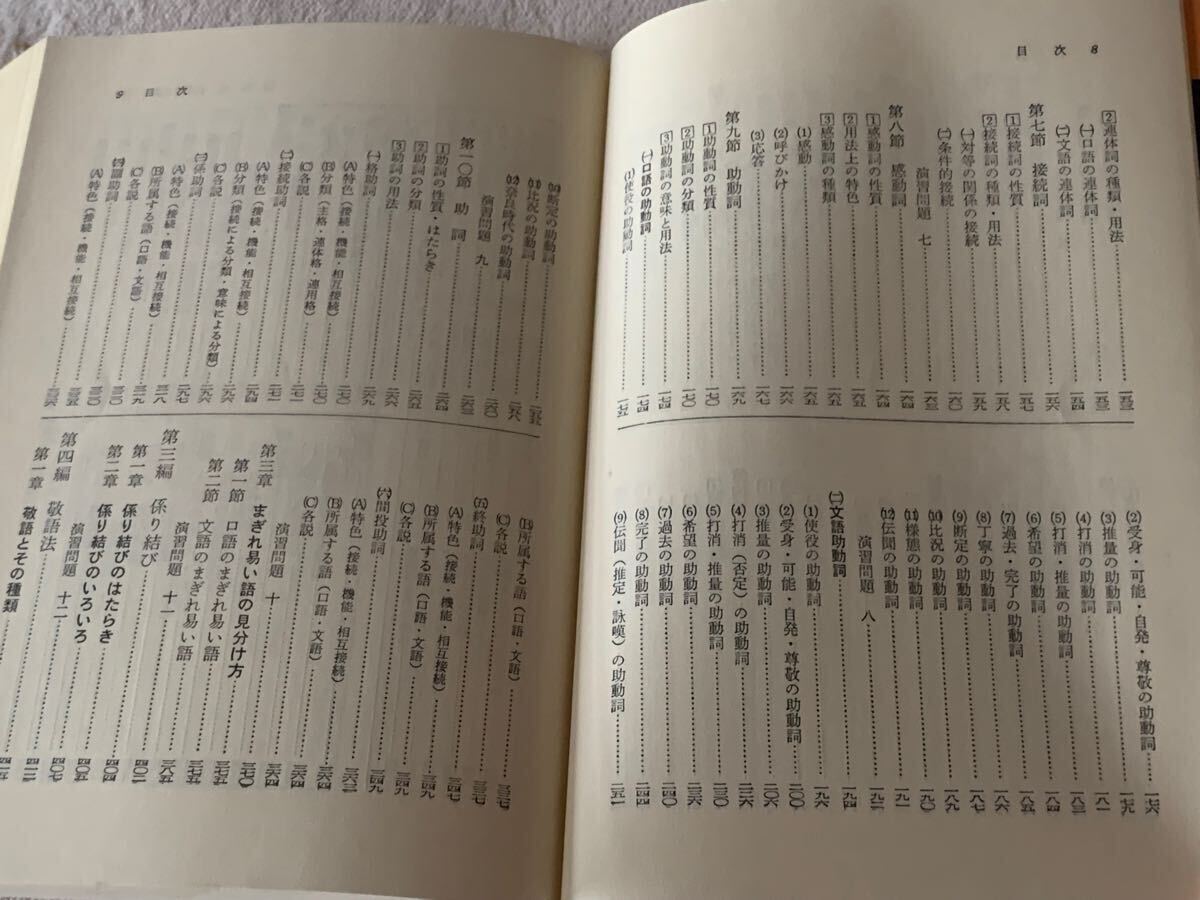 目次 8
2 連体詞の種類・用法……一五三
(一)口語の連体詞……一五三
(二)文語の連体詞……一五四
第七節 接続詞……一五六
1 接続詞の性質……一五七
2 接続詞の種類・用法……一五八
(一)対等の関係の接続……一五八
(二)条件的接続……一六〇
演習問題 七……一六三
第八節 感動詞……一六四
1 感動詞の性質……一六四
2 用法上の特色……一六五
3 感動詞の種類……一六五
(1)感動……一六五
(2)呼びかけ……一六六
(3)応答……一六七
第九節 助動詞……一六九
1 助動詞の性質……一七〇
2 助動詞の分類……一七〇
3 助動詞の意味と用法……一七四
(一)口語の助動詞……一七四
(1)使役の助動詞……一七五
(2)受身・可能・自発・尊敬の助動詞……一七六
(3)推量の助動詞……一七九
(4)打消の助動詞……一八一
(5)打消・推量の助動詞……一八三
(6)希望の助動詞……一八四
(7)過去・完了の助動詞……一八五
(8)丁寧の助動詞……一八六
(9)断定の助動詞……一八七
(10)比況の助動詞……一八九
(11)様態の助動詞……一九〇
(12)伝聞の助動詞……一九一
演習問題 八……一九二
(二)文語助動詞……一九四
(1)使役の助動詞……一九六
(2)受身・可能・自発・尊敬の助動詞……二〇〇
(3)推量の助動詞……二〇六
(4)打消(否定)の助動詞……二二六
(5)打消・推量の助動詞……
(6)希望の助動詞……
(7)過去の助動詞……二四〇
(8)完了の助動詞……二四四
(9)伝聞(推定・詠嘆)の助動詞……二五一
9 目次
(10)断定の助動詞……二五五
(11)比況の助動詞……二五八
(12)奈良時代の助動詞……二六〇
演習問題 九……二六三
第一〇節 助詞……二六四
1 助詞の性質・はたらき……二六四
2 助詞の分類……二六六
3 助詞の用法……二六九
(一)格助詞……二六九
(A)特色(接続・機能・相互接続)……二七〇
(B)分類(主格・連体格・連用格)……二七〇
(C)各説……二七一
(二)接続助詞……
(A)特色(接続・機能・相互接続)……二九四
(B)分類(接続による分類・意味による分類)……二九六
(C)各説……二九六
(三)係助詞……
(A)特色(接続・機能・相互接続)……
(B)所属する語(口語・文語)……
(C)各説……
(四)副助詞……
(A)特色(接続・機能・相互接続)……
(B)所属する語(口語・文語)……三三七
(C)各説……三三七
(五)終助詞……三四七
(A)特色(接続・機能・相互接続)……
(B)所属する語(口語・文語)……三四九
(C)各説……三四九
(六)間投助詞……
(A)特色(接続・機能・相互接続)……三六三
(B)所属する語(口語・文語)……三六四
(C)各説……三六四
演習問題 十……三六四
第三章 まぎれ易い語の見分け方……三七〇
第一節 口語のまぎれ易い語……三七五
第二節 文語のまぎれ易い語……三七五
演習問題 十一……三八五
第三編 係り結び……四〇二
第一章 係り結びのはたらき……四〇四
第二章 係り結びのいろいろ……四〇五
演習問題 十二……四〇七
第四編 敬語法……四一二
第一章 敬語とその種類……四一五